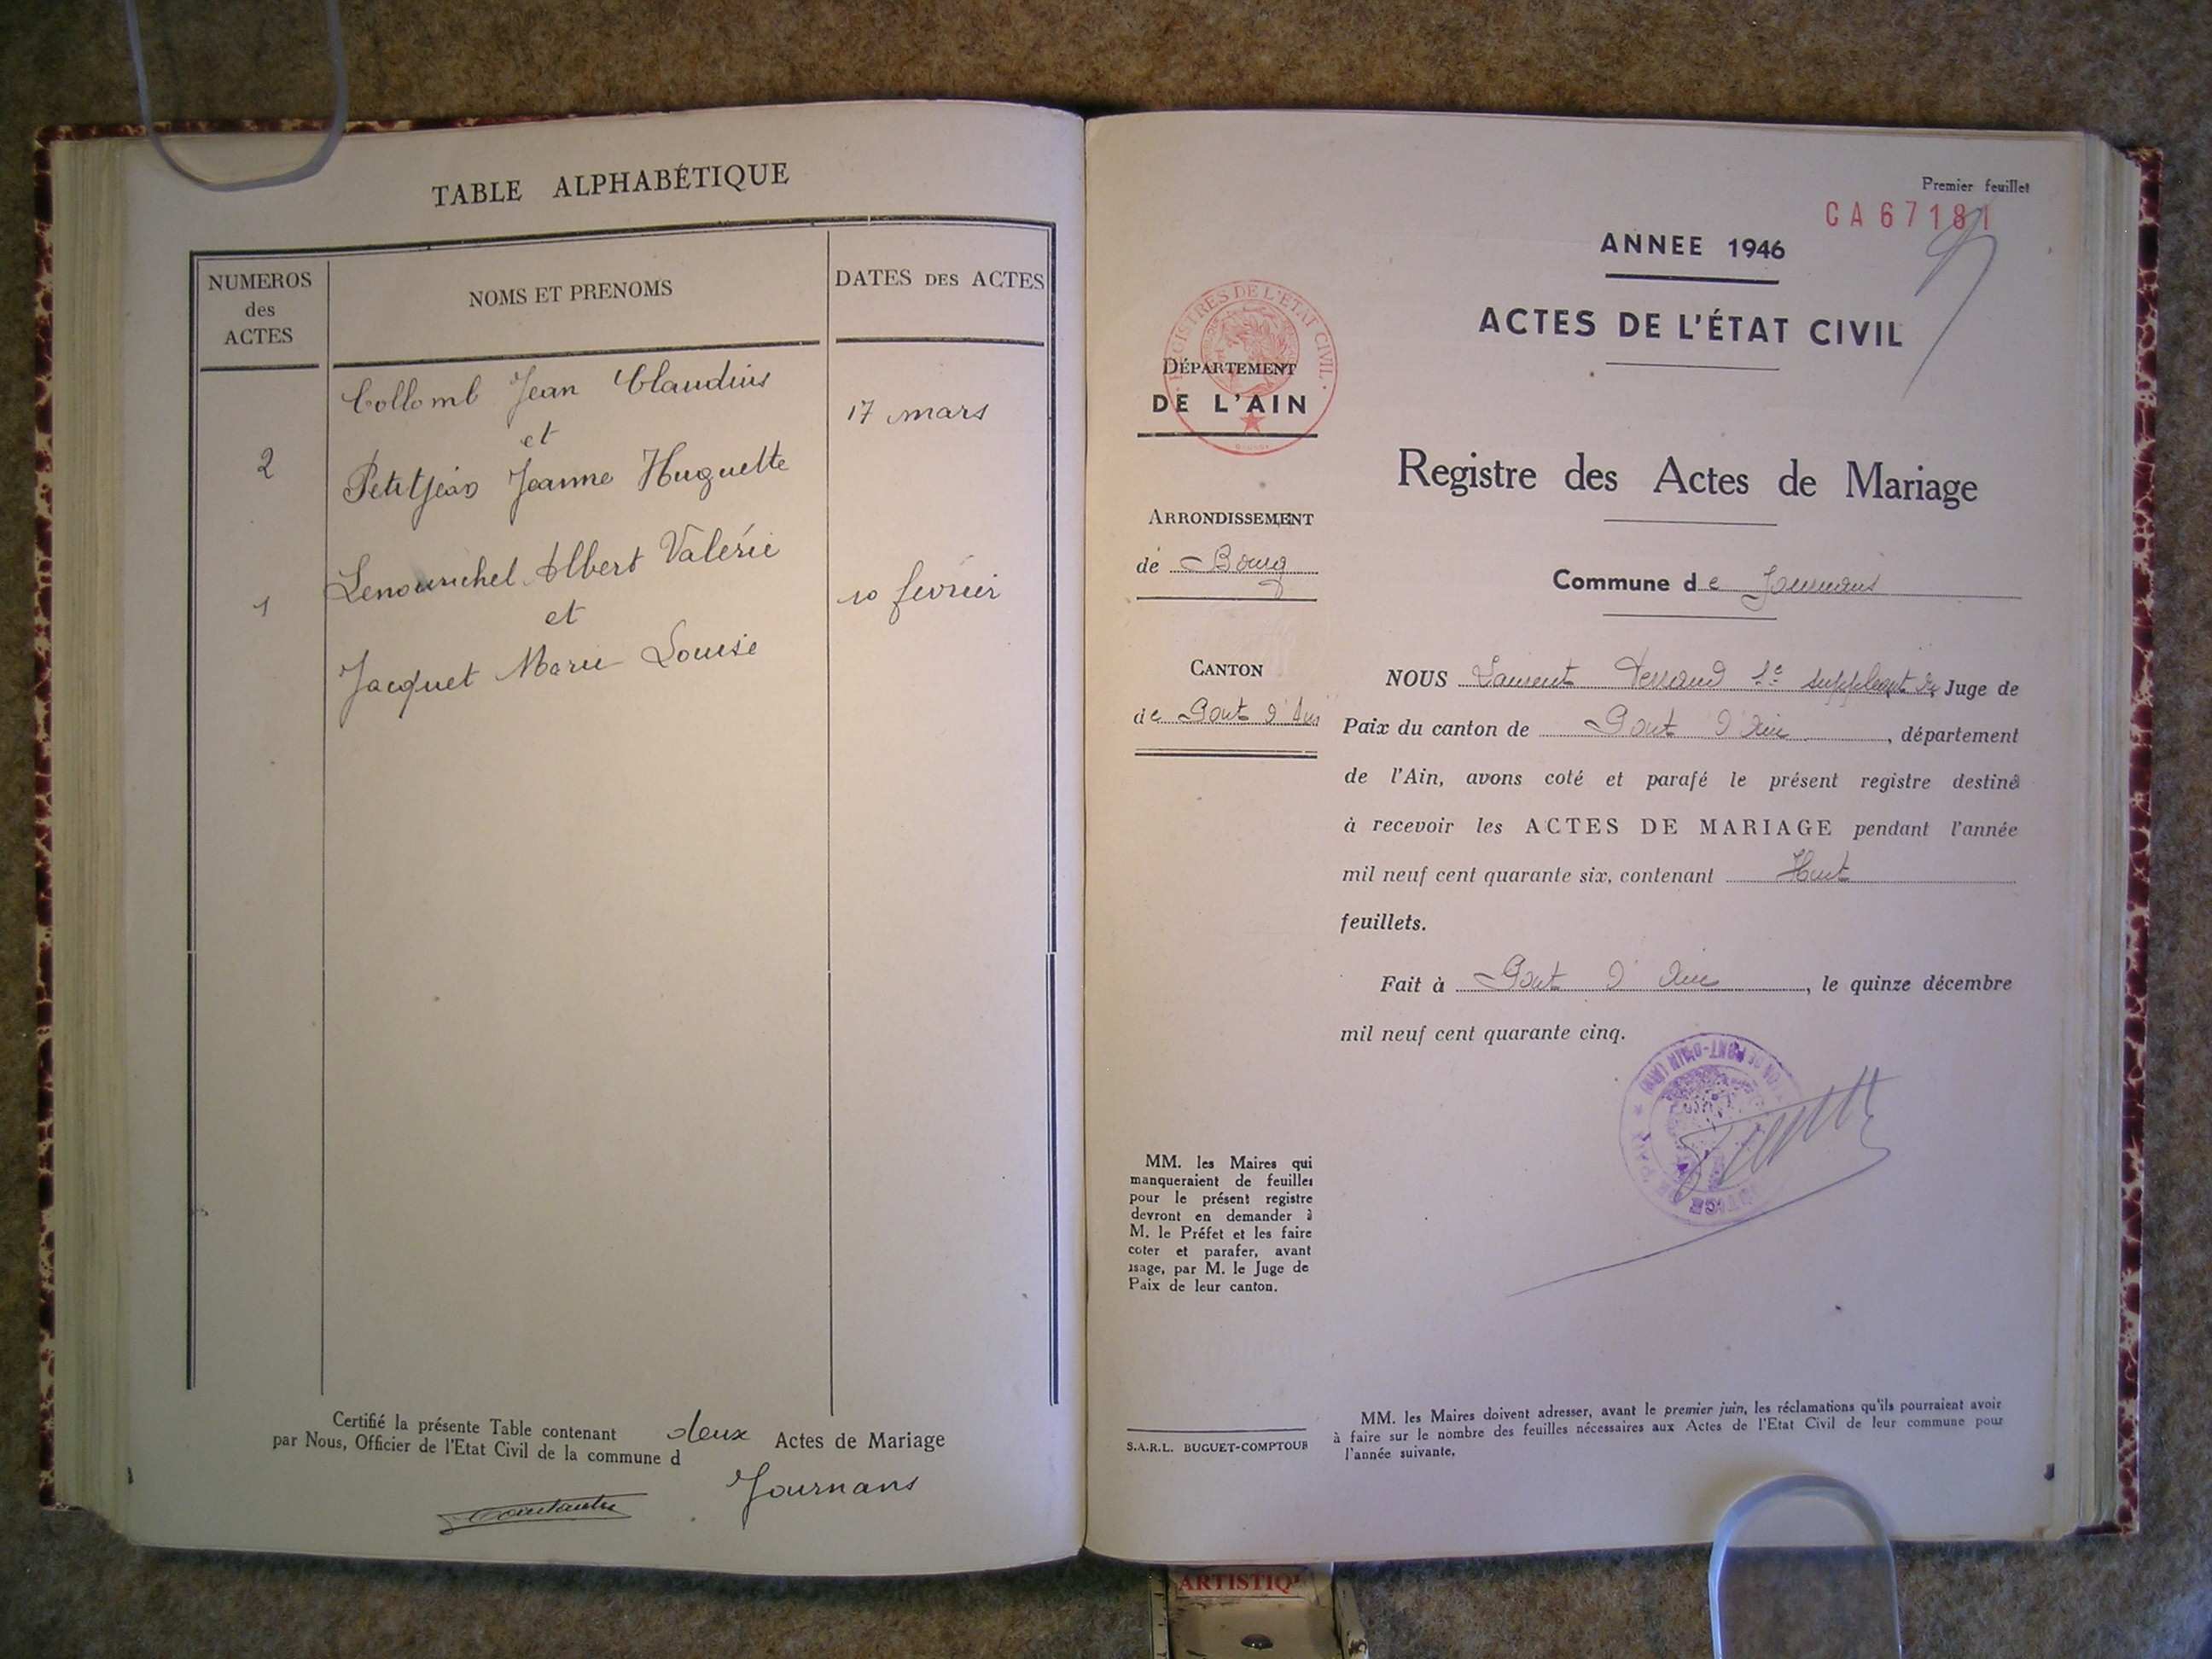 TABLE ALPHABÉTIQUE
NUMEROS
des
ACTES
NOMS ET PRENOMS
DATES DES ACTES
Collomb Jean Claudius
17 mars
et
2
Petitjean Jeanne Huguette
Albert Valérie
1
10 février
et
Jacquet Marie Louise
Certifié la présente Table contenant deux Actes de Mariage
par Nous, Officier de l'Etat Civil de la commune d
Journans
Premier feuillet
CA 67181
ANNEE 1946
ACTES DE L'ÉTAT CIVIL
REGISTRES DE L'ÉTAT CIVIL
DÉPARTEMENT
DE L'AIN
Registre des Actes de Mariage
ARRONDISSEMENT
de Bourg
Commune de Journans
CANTON
de Pont d'Ain
NOUS Laurent 1er suppléant du Juge de
Paix du canton de Pont d'Ain, département
de l'Ain, avons coté et parafé le présent registre destiné
à recevoir les ACTES DE MARIAGE pendant l'année
mil neuf cent quarante six, contenant Huit
feuillets.
Fait à Pont d'Ain, le quinze décembre
mil neuf cent quarante cinq.
MM. les Maires qui
manqueraient de feuilles
pour le présent registre
devront en demander à
M. le Préfet et les faire
coter et parafer, avant
usage, par M. le Juge de
Paix de leur canton.
S.A.R.L. BUGUET-COMPTOUR
MM. les Maires doivent adresser, avant le premier juin, les réclamations qu'ils pourraient avoir
à faire sur le nombre des feuilles nécessaires aux Actes de l'Etat Civil de leur commune pour
l'année suivante.
ARTISTIQ